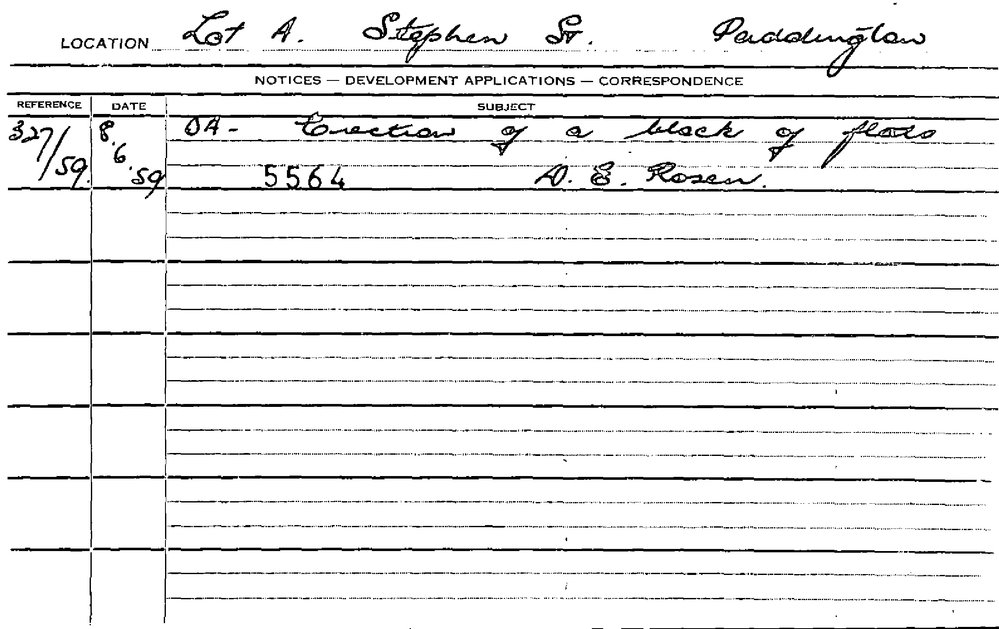 LOCATION Lot A. Stephen St. Paddington
NOTICES — DEVELOPMENT APPLICATIONS — CORRESPONDENCE
REFERENCE DATE SUBJECT
327/ 8. DA- Erection of a block of flats
/59. 6. '59 5564 D. E. Rosen.